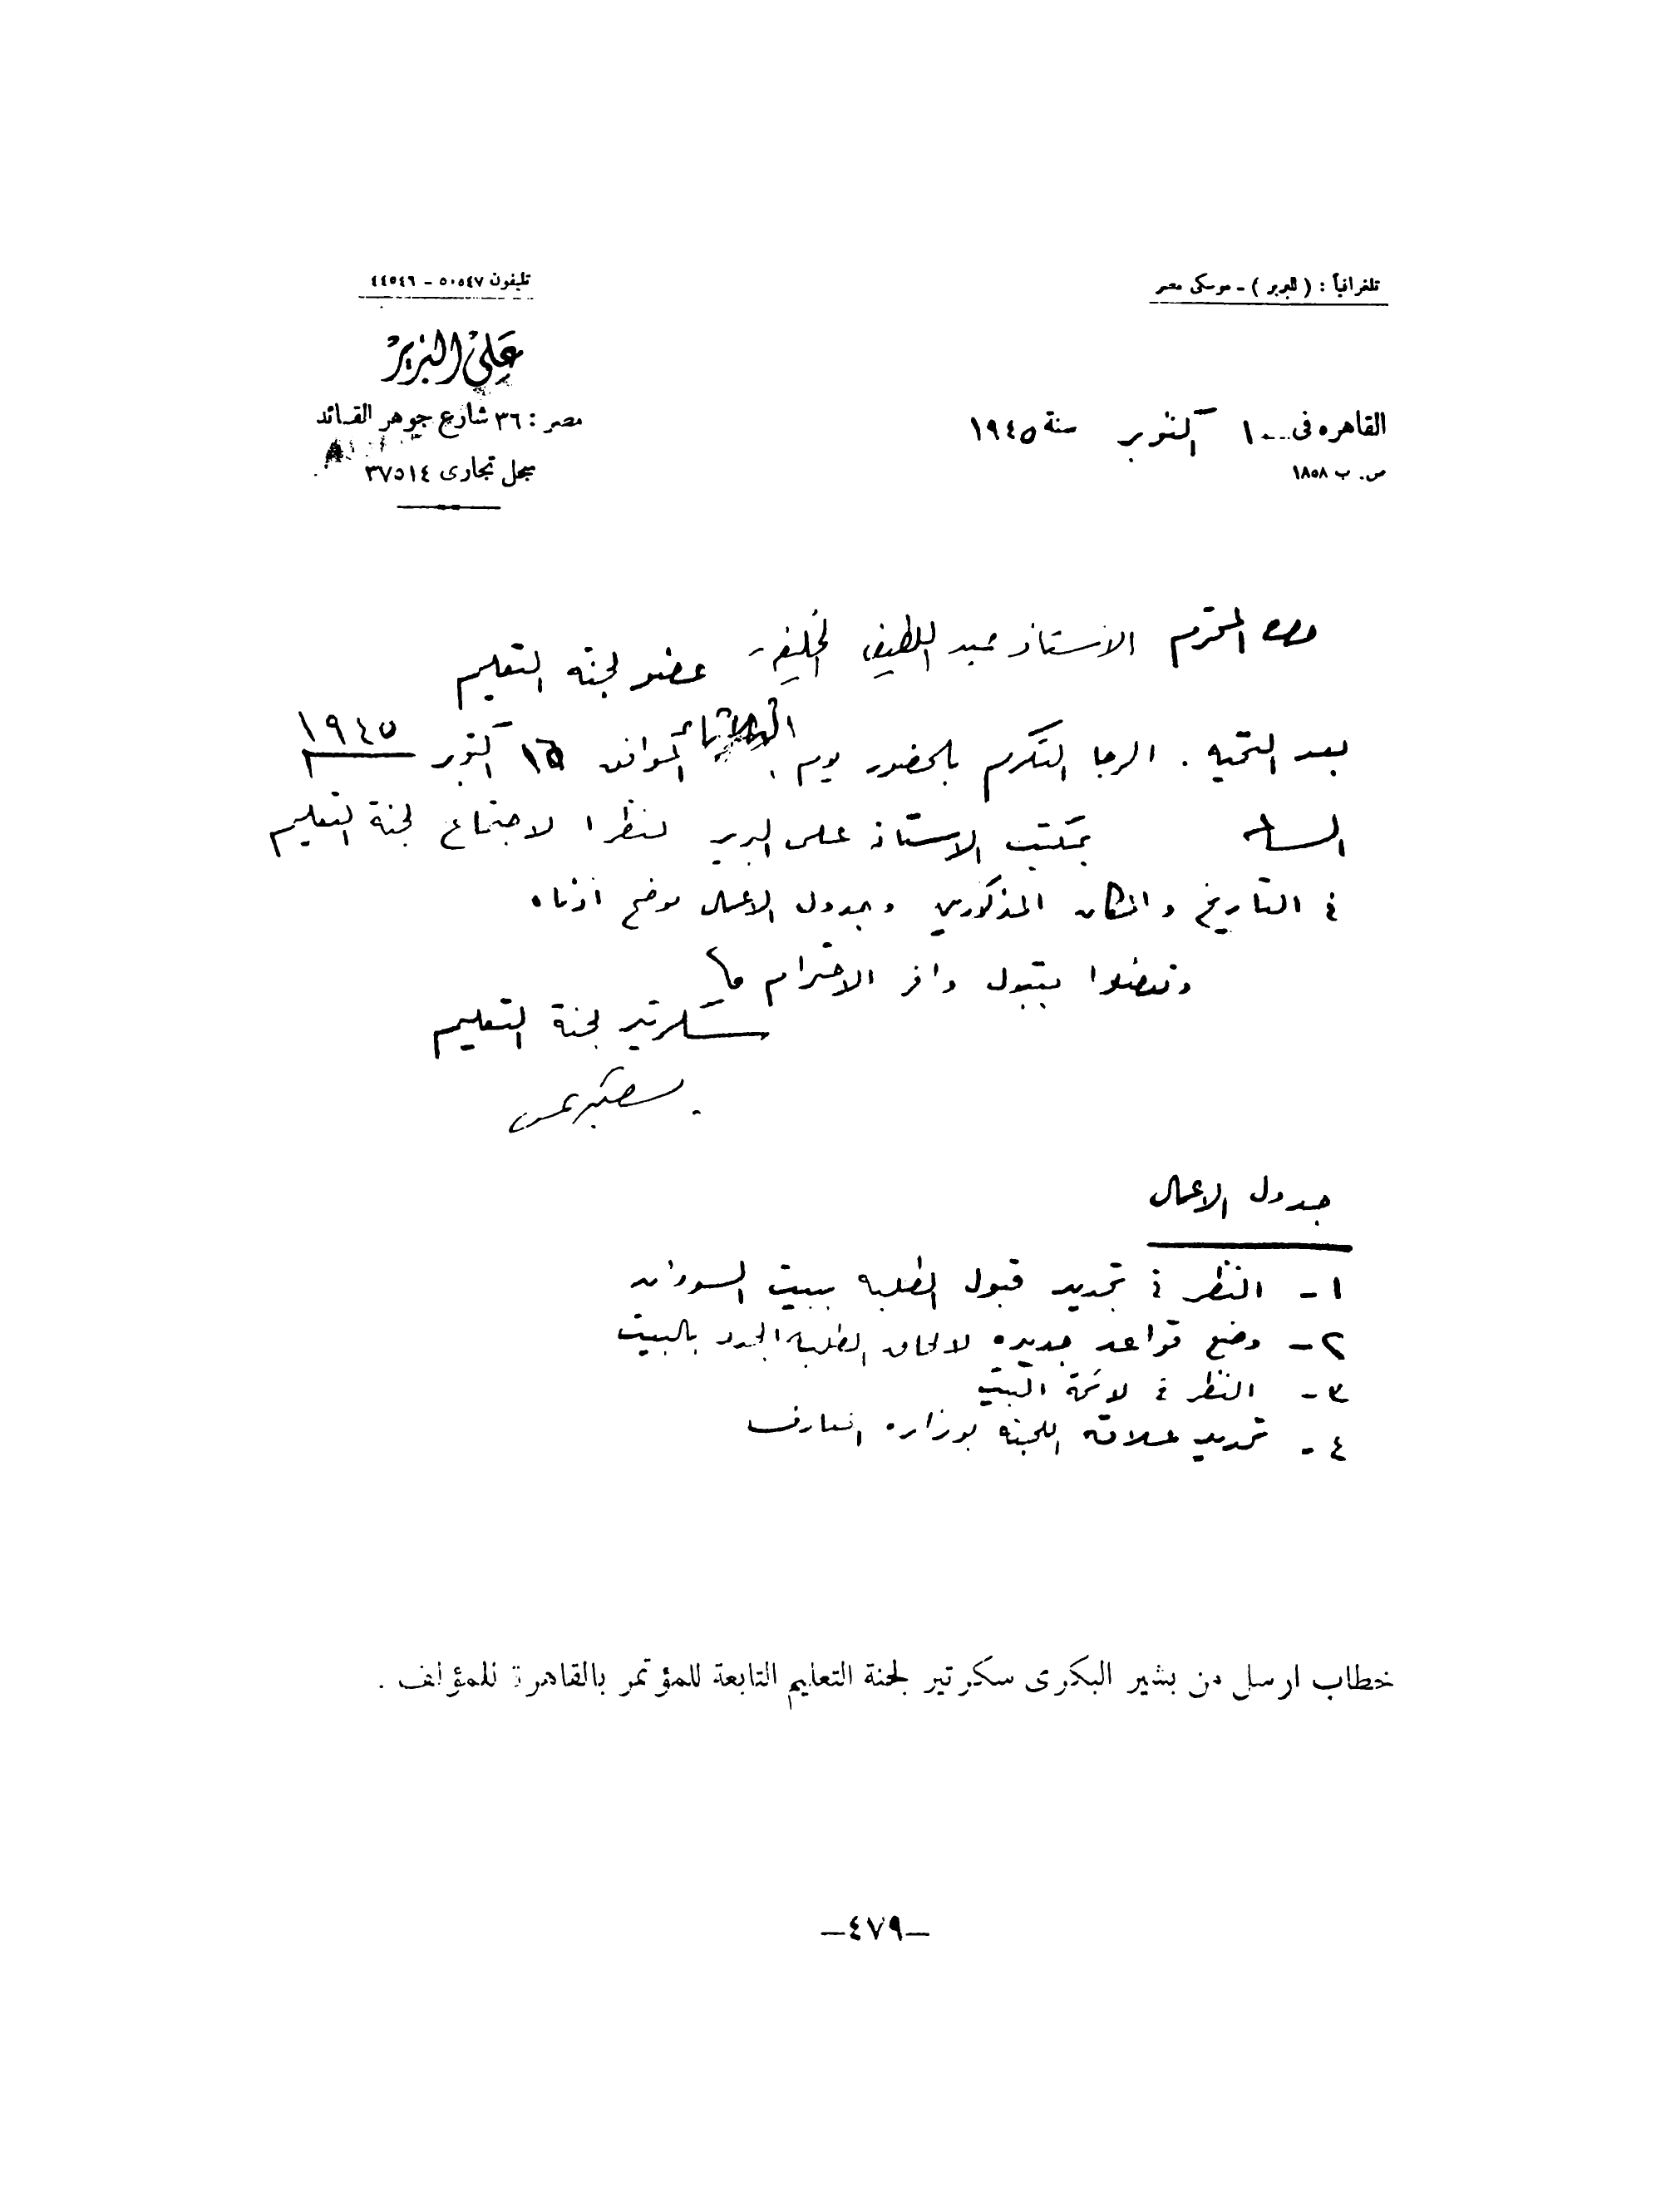 تلغرافياً : ( البرير ) - موسكى مصر
تليفون ٥٠٥٤٧ - ٤٤٥٤٦
على البرير
مصر : ٣٦ شارع جوهر القائد
سجل تجارى ٣٧٥١٤
القاهره فى ١٠ اكتوبر سنة ١٩٤٥
ص . ب ١٨٥٨
حضرة المحترم الاستاذ عبد اللطيف الخليفه عضو لجنة التعليم
بعد التحيه . الرجا التكرم بالحضور يوم الثلاثاء الموافق ١٦ اكتوبر ١٩٤٥
الساعه بمكتب الاستاذ على البرير نظرا لاجتماع لجنة التعليم
فى التاريخ والمكان المذكورين وجدول الاعمال موضح ادناه
وتفضلوا بقبول وافر الاحترام
سكرتير لجنة التعليم
جدول الاعمال
١- النظر فى تجديد قبول الطلبه ببيت السودان
٢- وضع قواعد جديده لالحاق الطلبه الجدد بالبيت
٣- النظر فى لائحة البيت
٤- تحديد علاقة اللجنة بوزاره المعارف
خطاب ارسل من بشير البكرى سكرتير لجنة التعليم التابعة للمؤتمر بالقاهرة للمؤلف .
–٤٧٩–